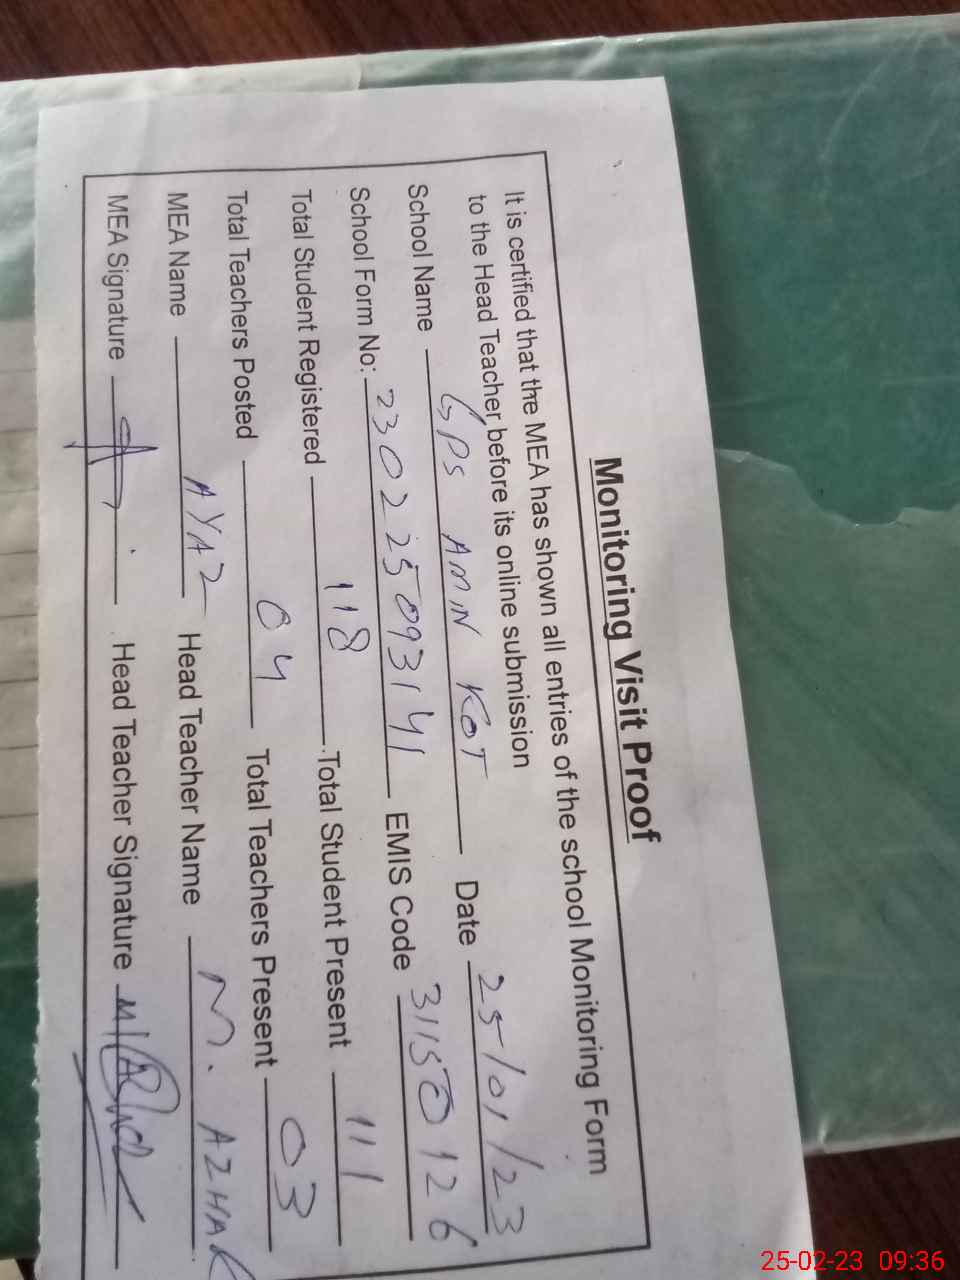 Monitoring Visit Proof
It is certified that the MEA has shown all entries of the school Monitoring Form
to the Head Teacher before its online submission
School Name GPS AMIN KOT Date 25/01/23
School Form No: 230225093141 EMIS Code 31150126
Total Student Registered 118 Total Student Present 111
Total Teachers Posted 04 Total Teachers Present 03
MEA Name AYAZ Head Teacher Name M. AZHAR
MEA Signature Head Teacher Signature
25-02-23 09:36